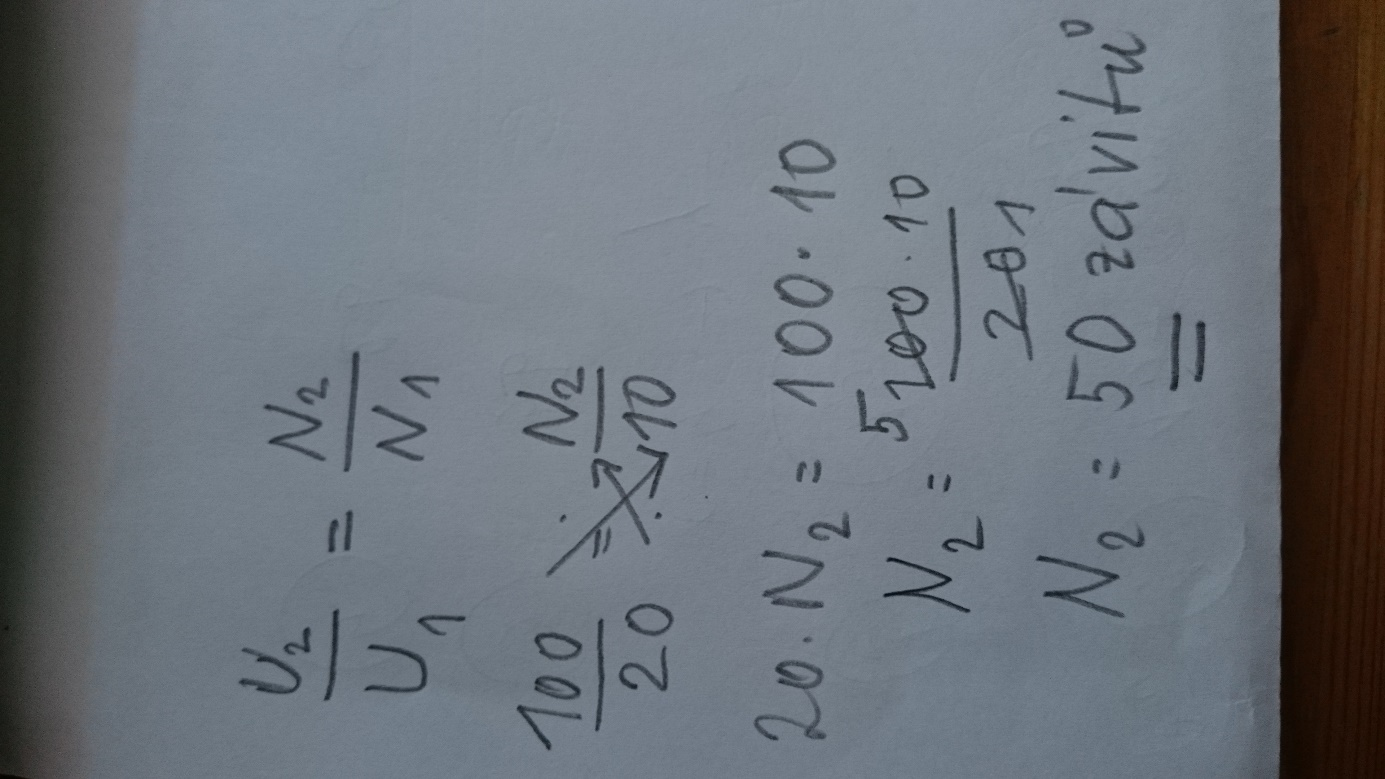 U₂/U₁ = N₂/N₁
100/20 = N₂/10
20 · N₂ = 100 · 10
N₂ = 5 100 · 10 / 20 1
N₂ = 50 závitů